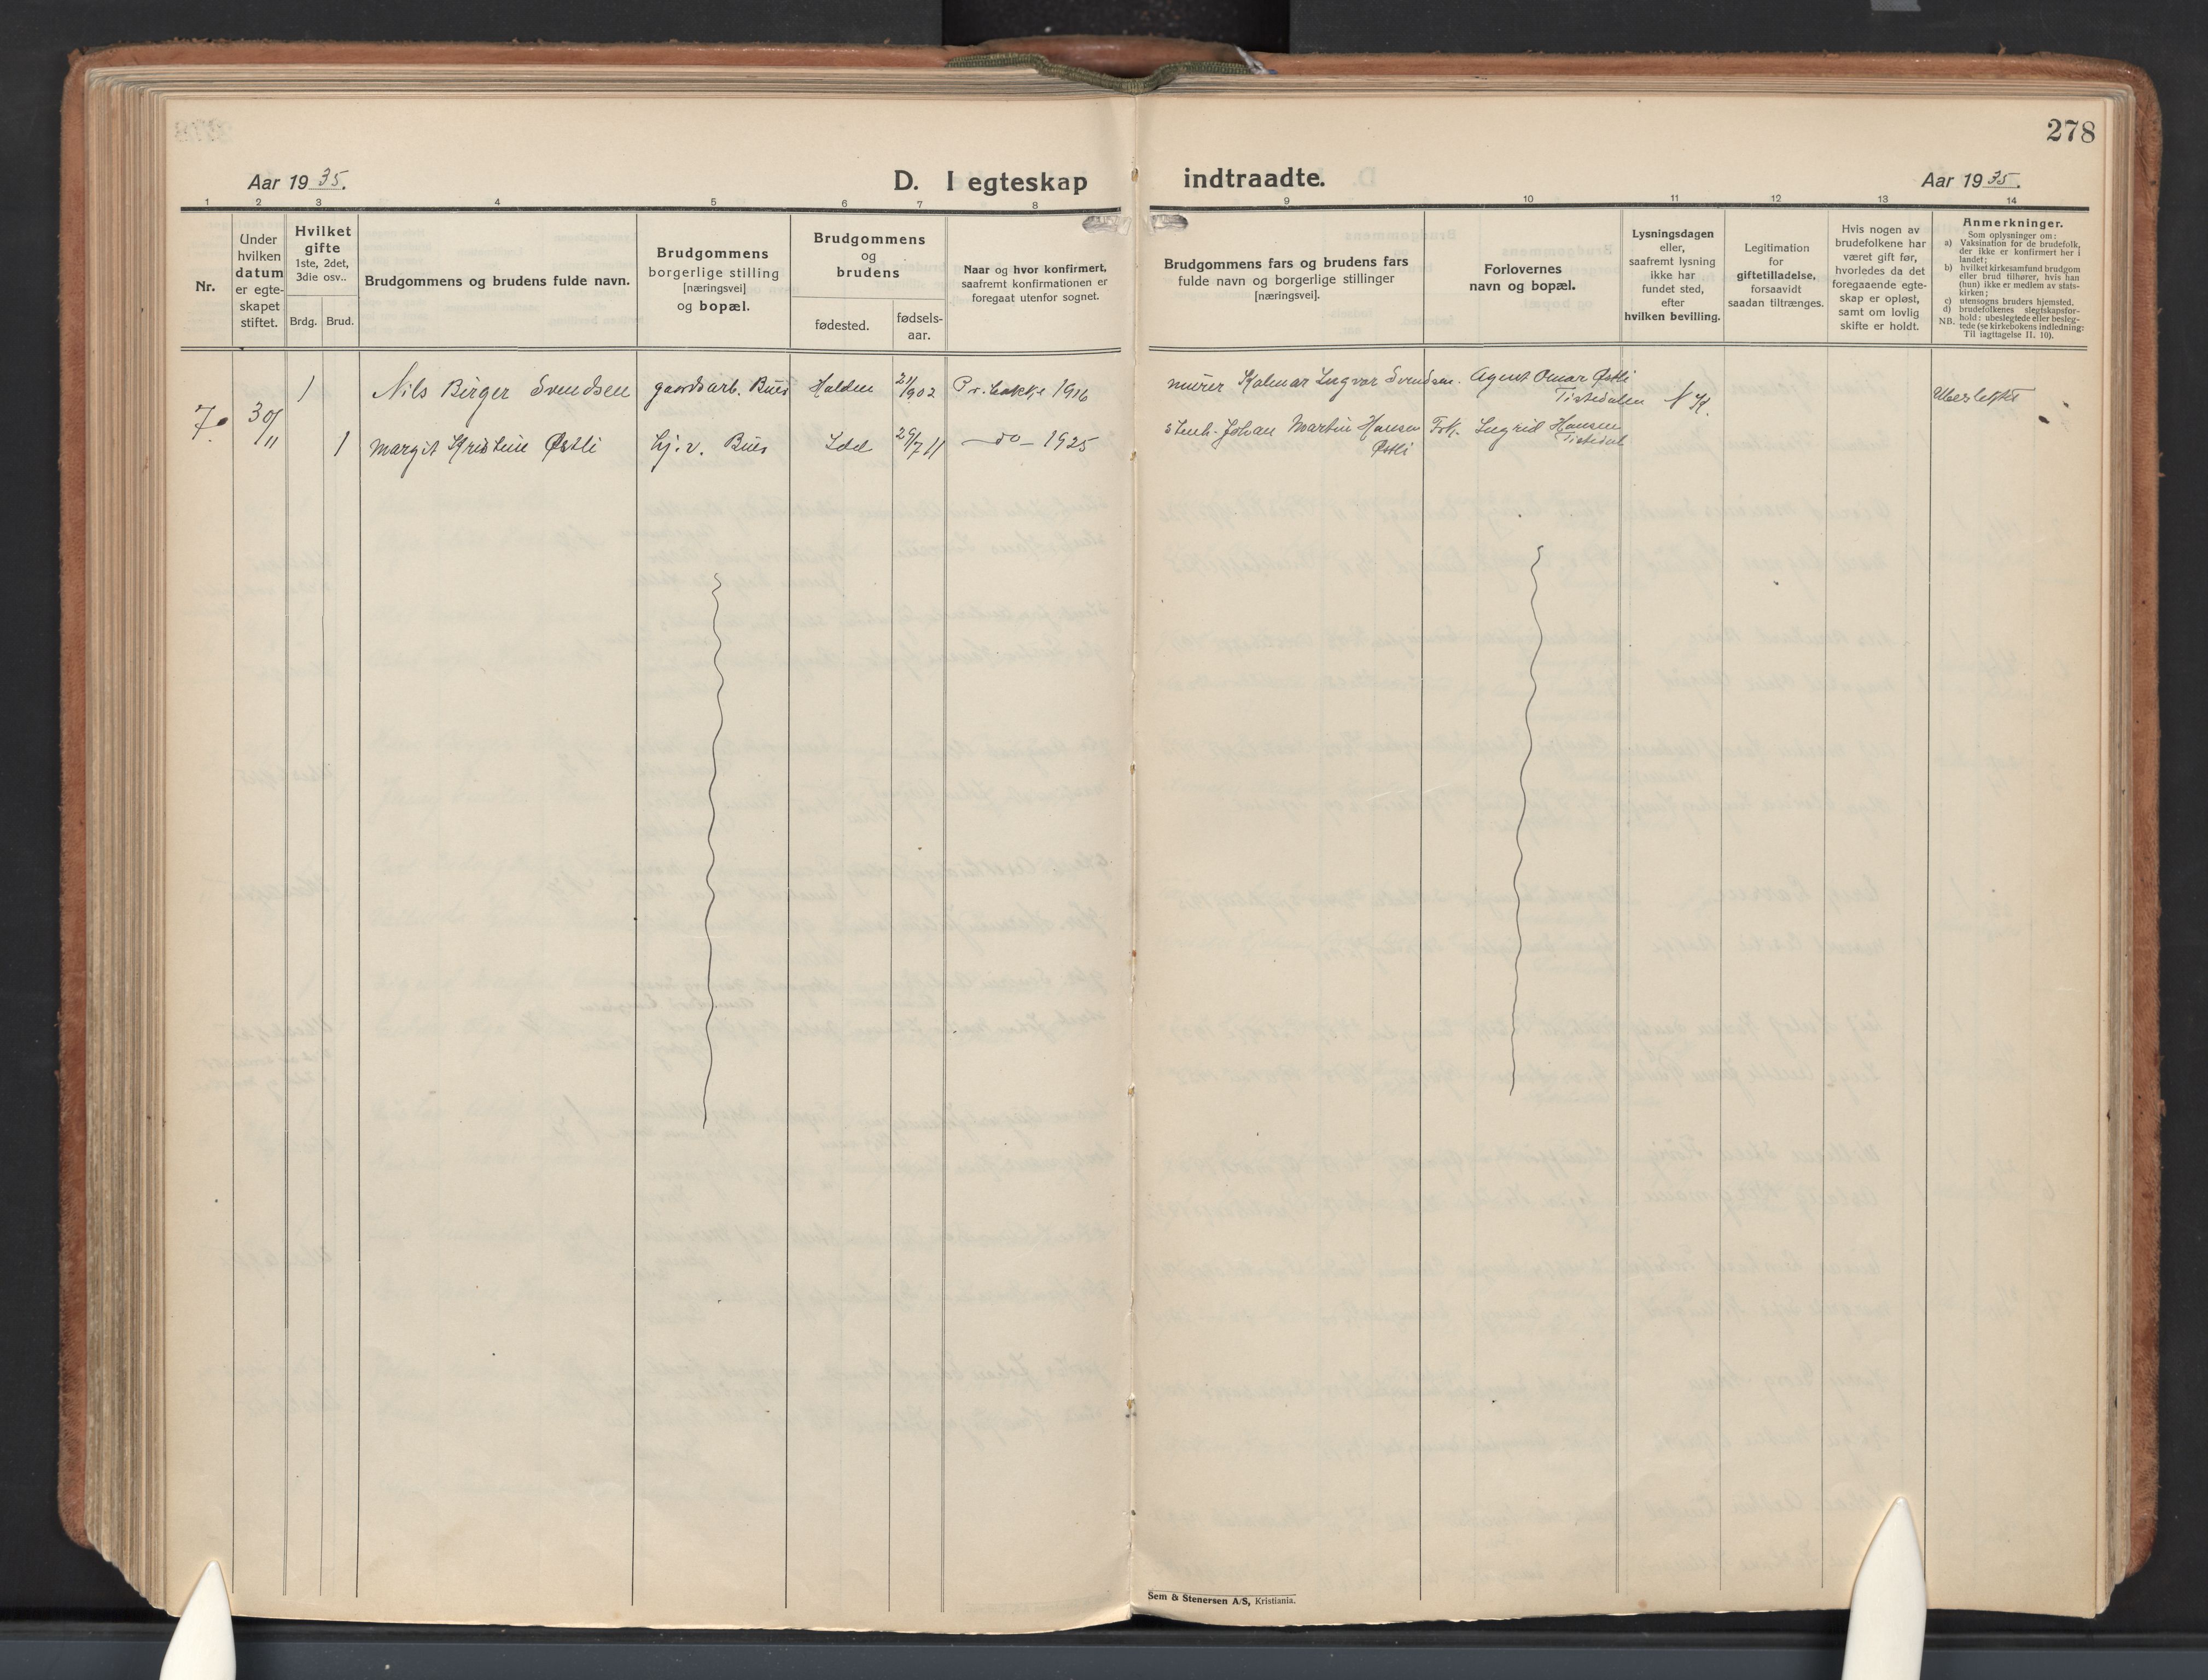 278
Aar 1935.
D. I egteskap indtraadte.
Aar 1935.
1 2 3 4 5 6 7 8 9 10 11 12 13 14
Nr.
Under
hvilken
datum
er egte-
skapet
stiftet.
Hvilket
gifte
1ste, 2det,
3die osv..
Brdg. Brud.
Brudgommens og brudens fulde navn.
Brudgommens
borgerlige stilling
[næringsvei]
og bopæl.
Brudgommens
og
brudens
fødested.
fødsels-
aar.
Naar og hvor konfirmert,
saafremt konfirmationen er
foregaat utenfor sognet.
Brudgommens fars og brudens fars
fulde navn og borgerlige stillinger
[næringsvei].
Forlovernes
navn og bopæl.
Lysningsdagen
eller,
saafremt lysning
ikke har
fundet sted,
efter
hvilken bevilling.
Legitimation
for
giftetilladelse,
forsaavidt
saadan tiltrænges.
Hvis nogen av
brudefolkene har
været gift før,
hvorledes da det
foregaaende egte-
skap er opløst,
samt om lovlig
skifte er holdt.
Anmerkninger.
Som oplysninger om:
a) Vaksination for de brudefolk,
der ikke er konfirmert her i
landet;
b) hvilket kirkesamfund brudgom
eller brud tilhører, hvis han
(hun) ikke er medlem av stats-
kirken;
c) utensogns bruders hjemsted.
d) brudefolkenes slegtskapsfor-
hold: ubeslegtede eller besleg-
NB. tede (se kirkebokens indledning:
Til iagttagelse II. 10).
1 Nils Birger Svendsen gaardsarb. Buer Halden 21/1 902 Pr. bakke 1916 murer Kalmar Ingvar Svendsen. Agent Omar Østli
Tistedalen
7. 30/11 N K. Ubeslektet
1 Margit Kristine Østli hj.v. Buer Idd 29/7 11 — do — 1925 Johan Martin Hansen Frk. Ingrid Hansen
Østli Tistedal
Sem & Stenersen A/S, Kristiania.